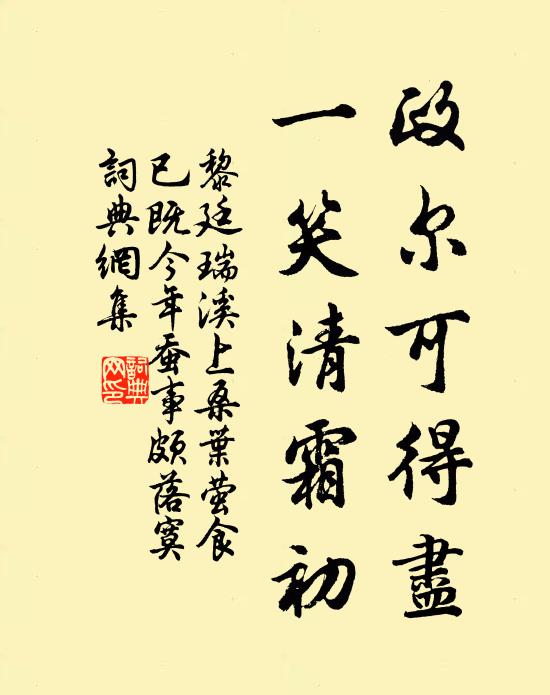 政尔可得盡
一笑清霜初
黎廷瑞溪上桑葉蛍食
已既今年蚕事頗落寞
詞典網集
詞典網印